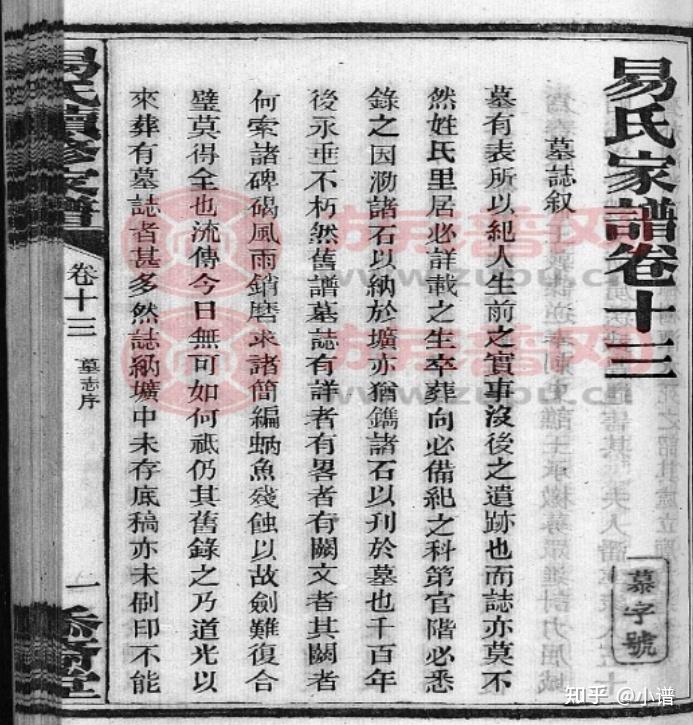 易氏家譜卷十三
慕字號
墓誌叙
墓有表所以紀人生前之實事沒後之遺跡也而誌亦莫不
然姓氏里居必詳載之生卒葬向必備紀之科第官階必悉
錄之因泐諸石以納於壙亦猶鐫諸石以刊於墓也千百年
後永垂不朽然舊譜墓誌有詳者有畧者有闕文者其闕者
何索諸碑碣風雨銷磨求諸簡編蚋魚殘蝕以故劍難復合
璧莫得全也流傳今日無可如何祗仍其舊錄之乃道光以
來葬有墓誌者甚多然誌納壙中未存底稿亦未刷印不能
易氏續修家譜
卷十三
墓志序
一
堂
族谱网
www.zupu.cn
族谱网
www.zupu.cn
知乎 @小谱